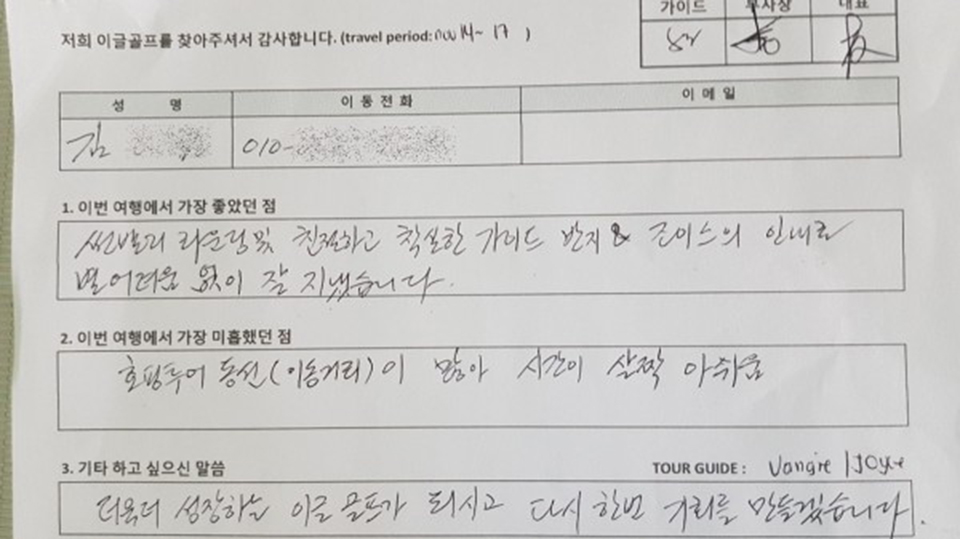 가이드 부사장 대표
저희 이글골프를 찾아주셔서 감사합니다. (travel period: nov 14~ 17 )
성 명 이 동 전 화 이 메 일
김 010-
1. 이번 여행에서 가장 좋았던 점
썬밸리 라운딩 및 친절하고 착실한 가이드 반지 & 조이스의 인내로
별 어려움 없이 잘 지냈습니다.
2. 이번 여행에서 가장 미흡했던 점
호핑투어 동선(이동거리)이 많아 시간이 살짝 아쉬움
3. 기타 하고 싶으신 말씀 TOUR GUIDE : Vangie | Joyce
더욱더 성장하는 이글 골프가 되시고 다시 한번 기회를 만들겠습니다.